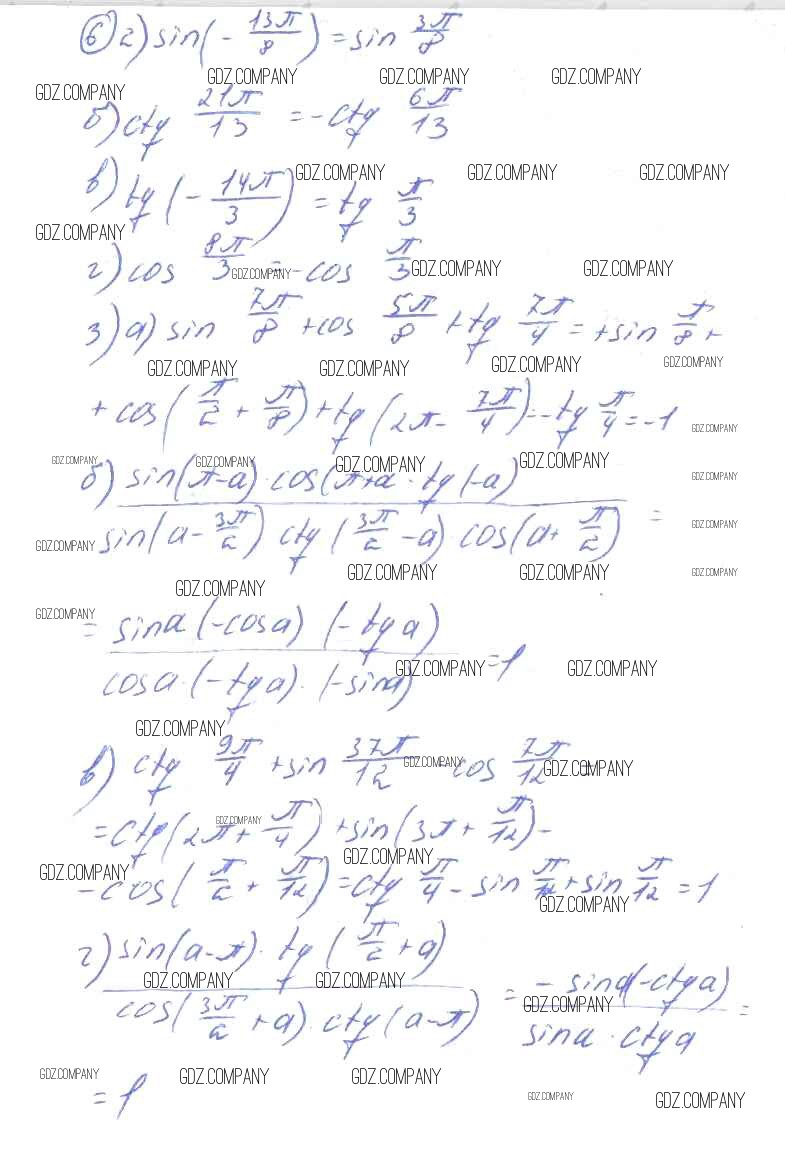 ⑥ 2) sin(-13π/8) = sin 3π/8
GDZ.COMPANY GDZ.COMPANY GDZ.COMPANY GDZ.COMPANY
б) ctg 21π/13 = -ctg 6π/13
GDZ.COMPANY GDZ.COMPANY GDZ.COMPANY
в) tg(-14π/3) = tg π/3
GDZ.COMPANY
г) cos 8π/3 = -cos π/3
GDZ.COMPANY GDZ.COMPANY GDZ.COMPANY
3) а) sin 7π/8 + cos 5π/8 + tg 7π/4 = + sin π/8 +
GDZ.COMPANY GDZ.COMPANY GDZ.COMPANY GDZ.COMPANY
+ cos(π/2 + π/8) + tg(2π - 7π/4) = -tg π/4 = -1
GDZ.COMPANY
GDZ.COMPANY GDZ.COMPANY GDZ.COMPANY GDZ.COMPANY GDZ.COMPANY
б) sin(π-a)·cos(π+a·tg(-a)
sin(a-3π/2) ctg(3π/2-a)·cos(a+π/2) =
GDZ.COMPANY GDZ.COMPANY
GDZ.COMPANY GDZ.COMPANY GDZ.COMPANY GDZ.COMPANY
GDZ.COMPANY
= sina(-cosa)(-tga)
cosa·(-tga)·(-sina) = 1
GDZ.COMPANY GDZ.COMPANY
GDZ.COMPANY
в) ctg 9π/4 + sin 37π/12 - cos 7π/12 =
GDZ.COMPANY GDZ.COMPANY
= ctg(2π + π/4) + sin(3π + π/12) -
GDZ.COMPANY
GDZ.COMPANY GDZ.COMPANY
- cos(π/2 + π/12) = ctg π/4 - sin π/12 + sin π/12 = 1
GDZ.COMPANY
г) sin(a-π)·tg(π/2+a)
cos(3π/2+a)·ctg(a-π) = -sina(-ctga)
sina·ctga =
GDZ.COMPANY GDZ.COMPANY GDZ.COMPANY
= 1
GDZ.COMPANY GDZ.COMPANY GDZ.COMPANY GDZ.COMPANY GDZ.COMPANY